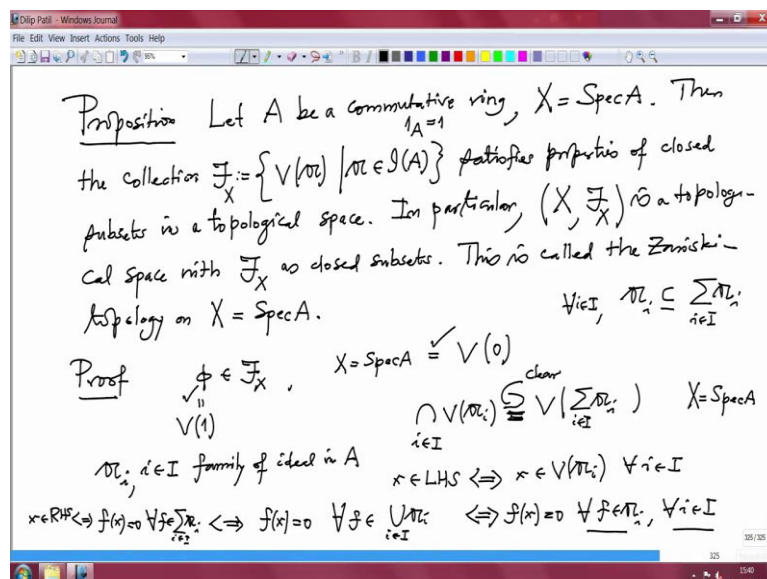 Dilip Patil - Windows Journal
File Edit View Insert Actions Tools Help
Proposition Let A be a commutative ring, X = Spec A. Then
1_A = 1
the collection ℱ_X := { V(𝔞) | 𝔞 ∈ 𝓘(A) } satisfies properties of closed
subsets in a topological space. In particular, (X, ℱ_X) is a topologi-
cal space with ℱ_X as closed subsets. This is called the Zariski-
topology on X = Spec A.
∀i∈I, 𝔞_i ⊆ ∑_{i∈I} 𝔞_i
Proof ϕ ∈ ℱ_X, X = Spec A = V(0)
✓ ॥ ✓
V(1)
clear
⋂_{i∈I} V(𝔞_i) ⊇ = V(∑_{i∈I} 𝔞_i) X = Spec A
𝔞_i, i∈I family of ideal in A
x ∈ LHS ⟺ x ∈ V(𝔞_i) ∀ i∈I
x ∈ RHS ⟺ f(x)=0 ∀ f∈∑_{i∈I} 𝔞_i ⟺ f(x)=0 ∀ f∈ ⋃_{i∈I} 𝔞_i ⟺ f(x)=0 ∀ f∈𝔞_i, ∀ i∈I
325/325
325
15:40